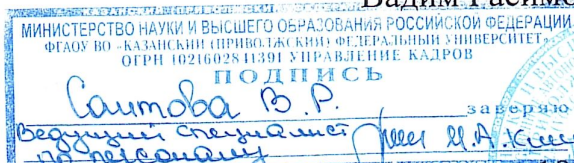 Вадим Гасимо
МИНИСТЕРСТВО НАУКИ И ВЫСШЕГО ОБРАЗОВАНИЯ РОССИЙСКОЙ ФЕДЕРАЦИИ
ФГАОУ ВО «КАЗАНСКИЙ (ПРИВОЛЖСКИЙ) ФЕДЕРАЛЬНЫЙ УНИВЕРСИТЕТ»
ОГРН 1021602841391 УПРАВЛЕНИЕ КАДРОВ
ПОДПИСЬ
Саитова В. Р.
заверяю
Ведущий специалист
по персоналу